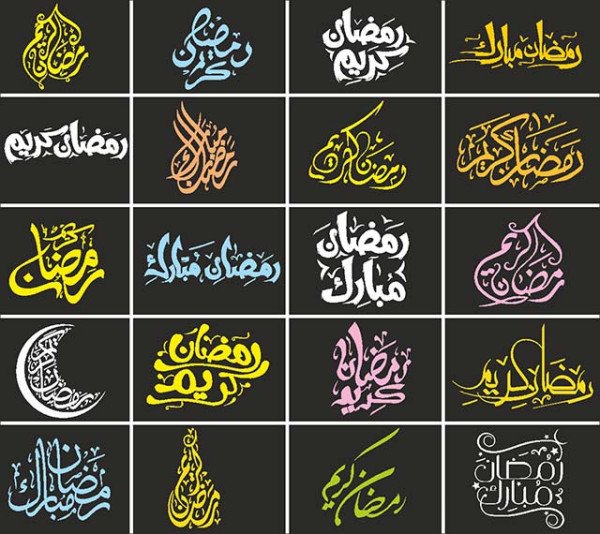 رمضان مبارك
رمضان
كريم
رمضان
كريم
رمضان كريم
رمضان كريم
رمضان كريم
رمضان مبارك
رمضان كريم
رمضان
الكريم
رمضان
مبارك
رمضان مبارك
رمضان كريم
رمضان كريم
رمضان
كريم
رمضان
كريم
رمضان كريم
رمضان
مبارك
رمضان كريم
رمضان كريم
رمضان
مبارك